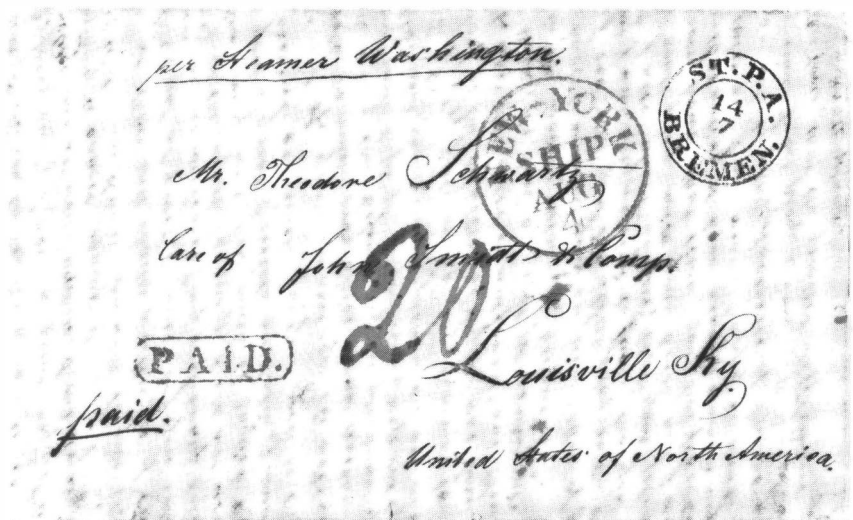 per Steamer Washington.
ST. P. A. BREMEN.
14
7
NEW-YORK
SHIP
AUG
4
Mr. Theodore Schwartz
Care of John Smidt & Comp.
20
PAID.
Louisville Ky.
paid.
United States of North America.